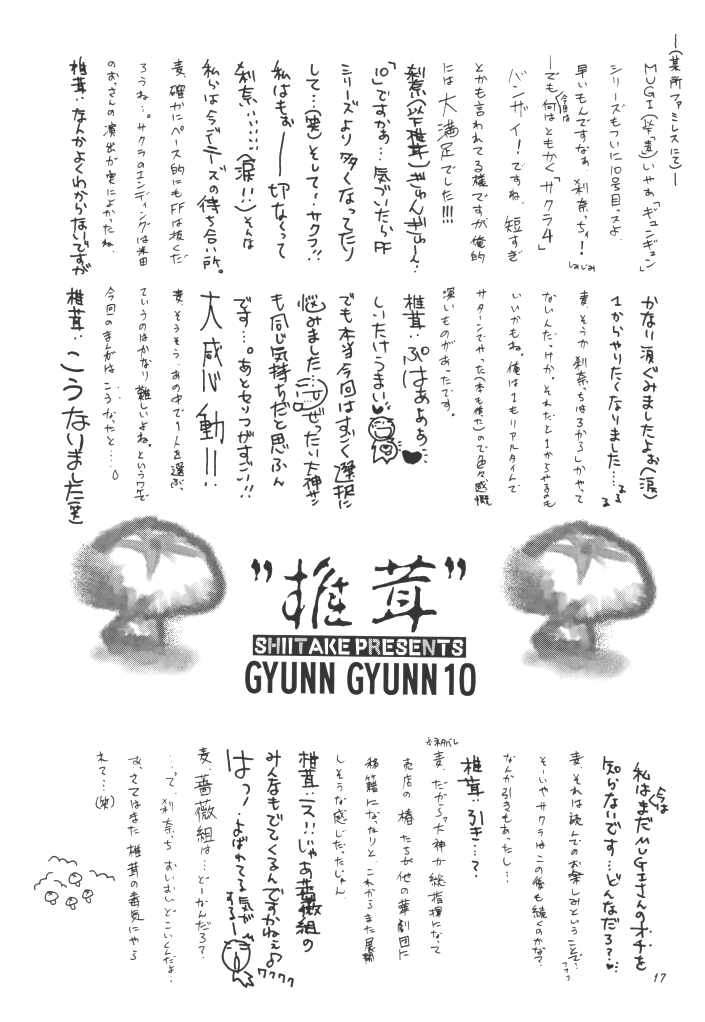 ―(某所ファミレスにて)―
MUGI(以下"麦")いやぁ「ギュンギュン」
シリーズもついに10号目っスよ.
早いもんですなぁ 刹奈っち!
しみじみ
―でも今日は何はともかく「サクラ4」
バンザイ!ですね. 短すぎ
とかも言われてる様ですが俺的
には大満足でした!!!
刹奈(以下椎茸)ぎゅんぎゅ〜ん…
「10」ですかぁ…気づいたらFF
シリーズより多くなってたり
して…(笑)そして!サクラ!!
私はもぉ――切なくって
刹奈……(涙!!)そんな
私らは今デニーズの待ち合い所。
麦、確かにペース的にもFFは抜くだ
ろうね…。サクラのエンディングは米田
のおっさんの演出が実によかったね.
椎茸:なんかよくわからないですが
かなり涙ぐみましたよぉ(涙)
1からやりたくなりました…
うるうる
麦 そうか刹奈ちはろからしかやって
ないんだっけか。それだと1からやるのも
いいかもね。俺は1もリアルタイムで
サターンでやった(本も作った)ので色々感慨
深いものがあったです。
椎茸:ぷはぁぁぁ…
しいたけうまい♥
でも本当今回はすごく選択に
悩みました…ぜったい大神サン
も同じ気持ちだと思ふん
です…。あとセリフがすごい!!
大感動!!
麦、そうそう、あの中で1人を選ぶ、
ていうのはかなり難しいよね。というワケで
今回のまんがはこうなったと…
椎茸:こうなりました(笑)
"椎茸"
SHIITAKE PRESENTS
GYUNN GYUNN 10
私は今はまだMUGIさんのオチを
知らないです…どんなだろ?…♥
麦 それは読んでのお楽しみということで…
フフフ
そーいやサクラはこの後も続くのかな?
なんか引きもあったし…
椎茸:引き…?
※ネタバレ
麦、だからっ、大神が総指揮になって
売店の椿たちが他の華劇団に
移籍になったりと これからまた展開
しそうな感じだったじゃん
椎茸:ス!!じゃあ薔薇組の
みんなもでてくるんですかねぇ♪
ワクワク
はっ!よばれてる気がするー
麦:薔薇組は…どーかんだろ?
…で、刹奈ち おいおいどこいくんだよ…
で、さてはまた 椎茸の毒気にやら
れて…(笑)
17